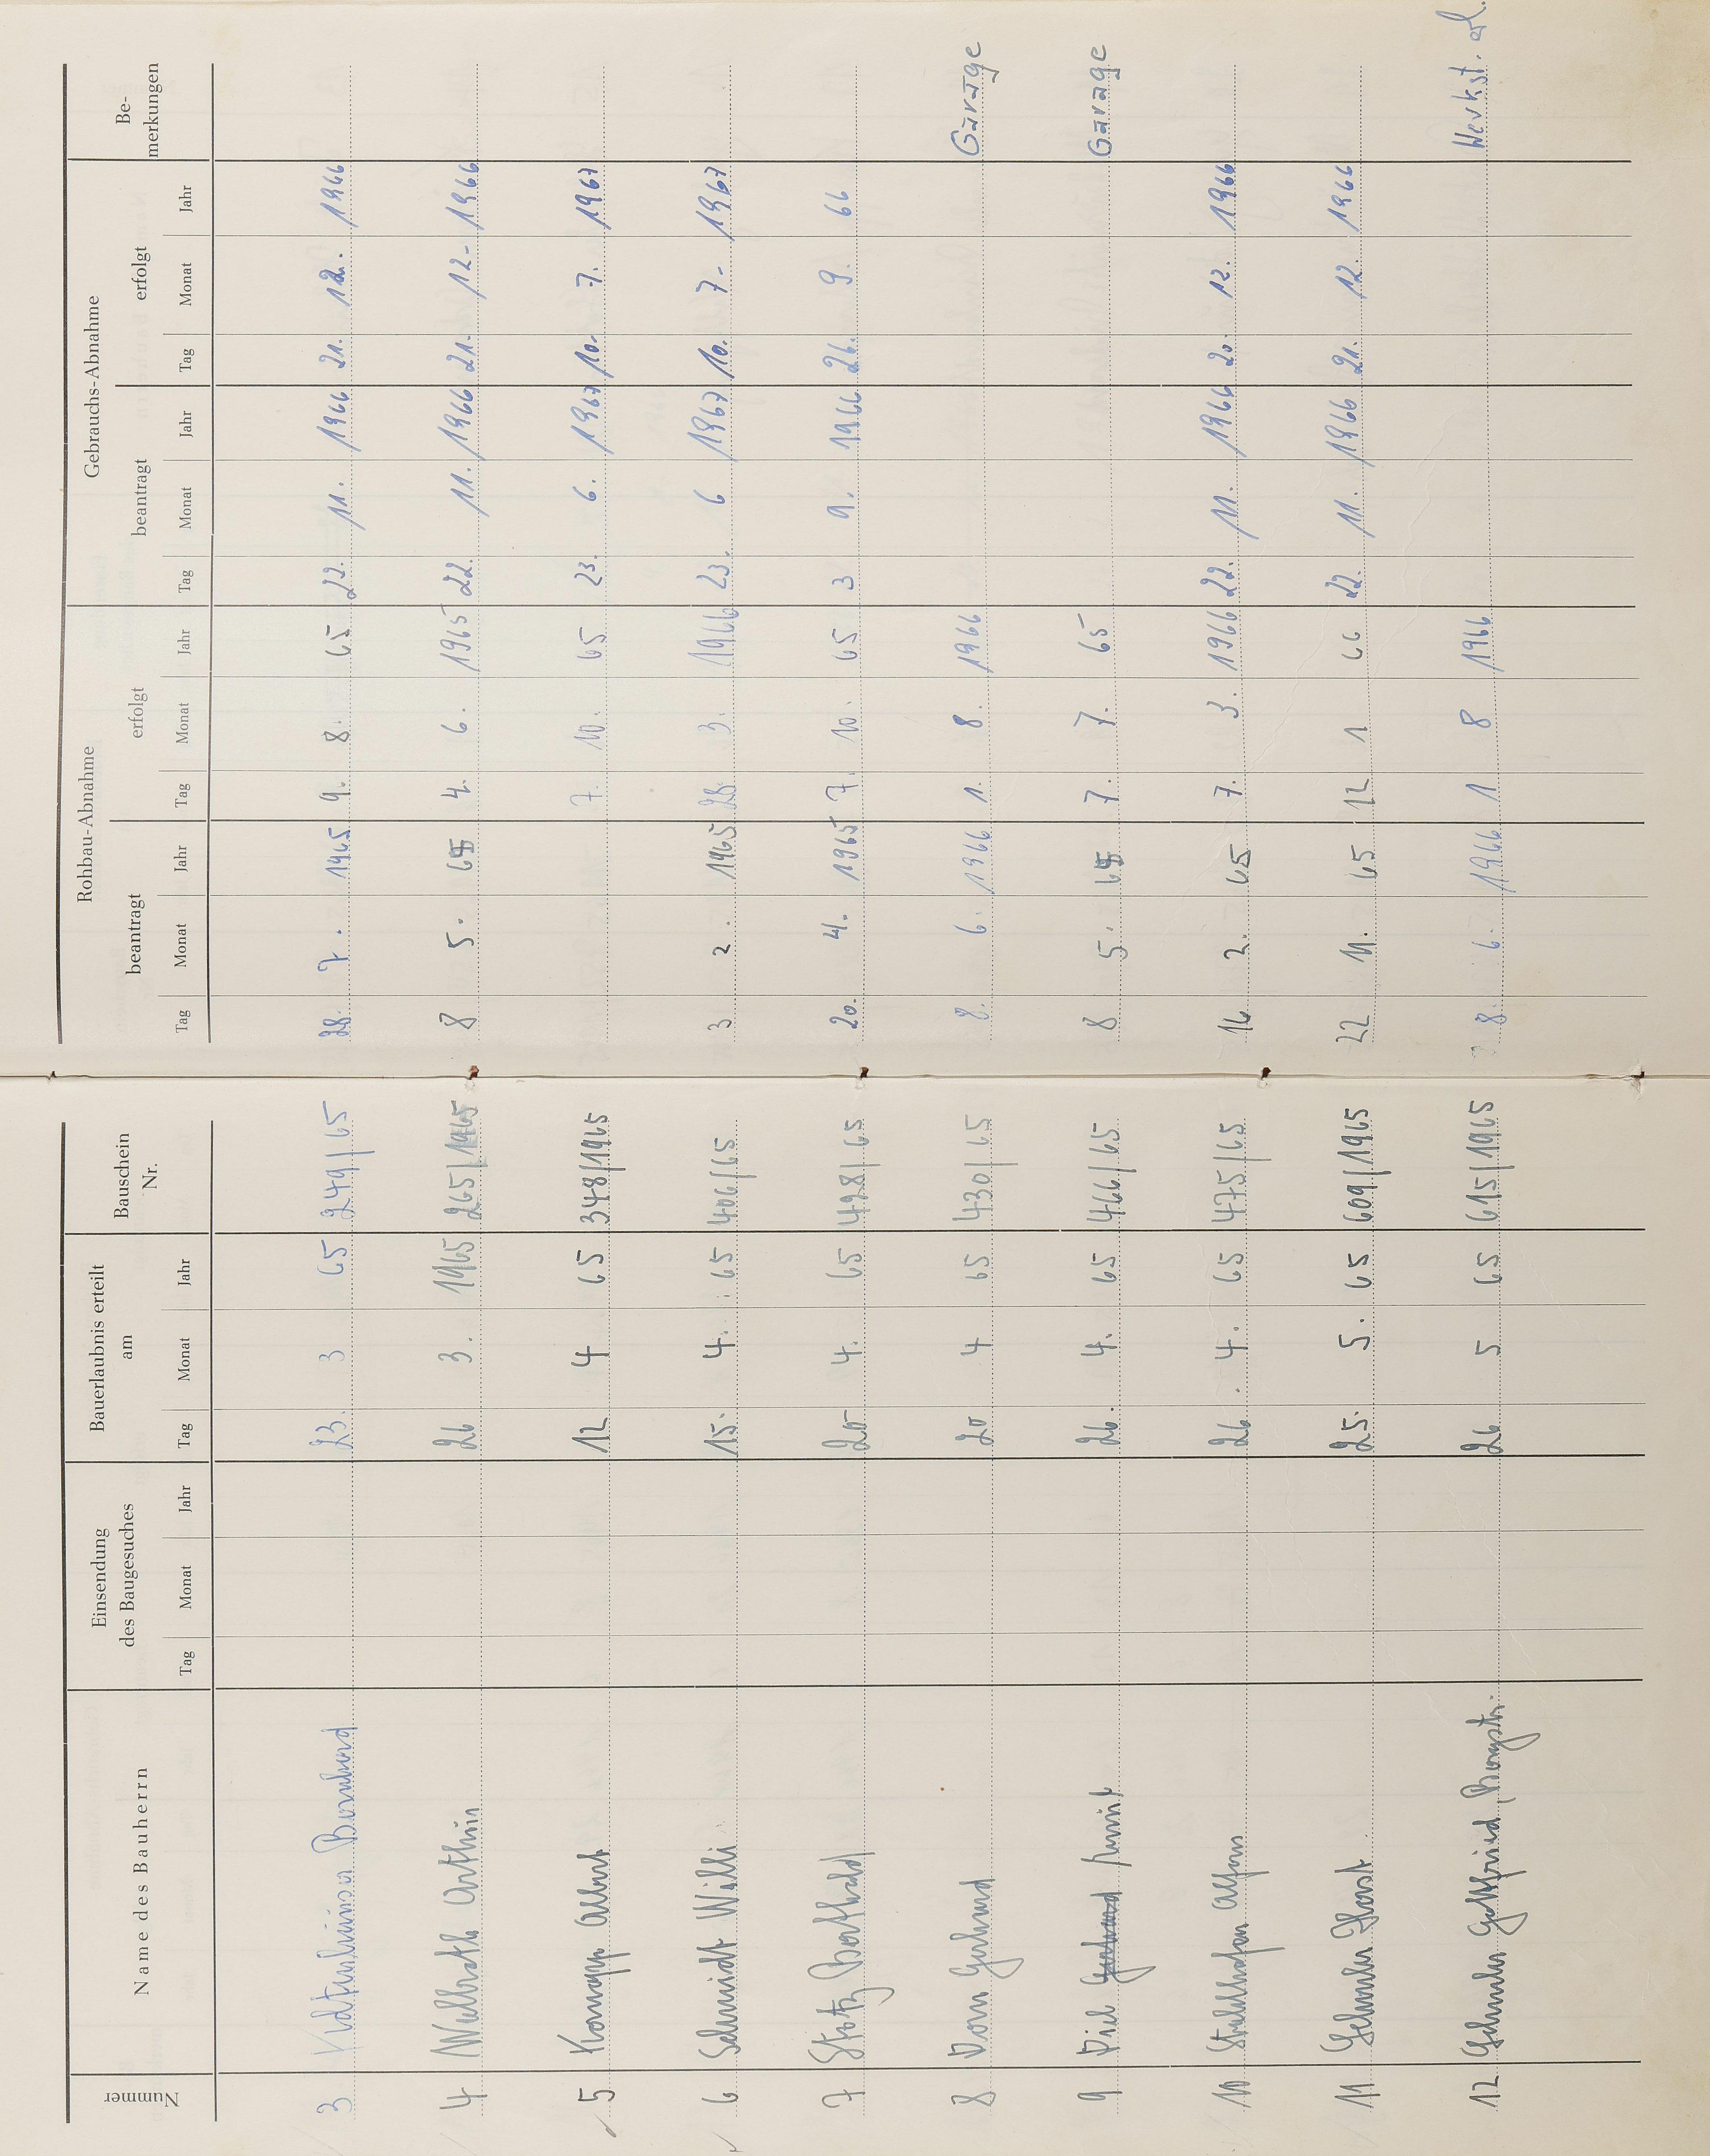 Nummer Name des Bauherrn Einsendung des Baugesuches Bauerlaubnis erteilt am Bauschein Nr. Rohbau-Abnahme Gebrauchs-Abnahme Be-merkungen
beantragt erfolgt beantragt erfolgt
Tag Monat Jahr Tag Monat Jahr Tag Monat Jahr Tag Monat Jahr Tag Monat Jahr Tag Monat Jahr
3 Bernhard 23. 3 65 249/65 28. 7. 1965 9. 8. 65 22. 11. 1966 21. 12. 1966
4 Arthur 26 3. 1965 265/1965 8 5. 65 4. 6. 1965 22. 11. 1966 21. 12. 1966
5 Knapp Albert 12 4 65 348/1965 7. 10. 65 23. 6. 1967 10. 7. 1967
6 Schmidt Willi 15. 4. 65 406/65 3 2. 1965 28. 3. 1966 23. 6 1967 10. 7. 1967
7 Stotz Berthold 20 4. 65 428/65 20. 4. 1965 7. 10. 65 3 9. 1966 26. 9. 66
8 Dorn Gerhard 20 4 65 430/65 8. 6. 1966 1. 8. 1966 Garage
9 Diel 26. 4. 65 466/65 8 5. 65 7. 7. 65 Garage
10 Alfons 26. 4. 65 475/65 16 2. 65 7. 3. 1966 22. 11. 1966 20. 12. 1966
11 Horst 25. 5. 65 609/1965 22 11. 65 12 1 66 22. 11. 1966 21. 12. 1966
12 Gottfried, Burgstr. 26 5 65 615/1965 8. 6. 1966 1 8 1966 Werkst.